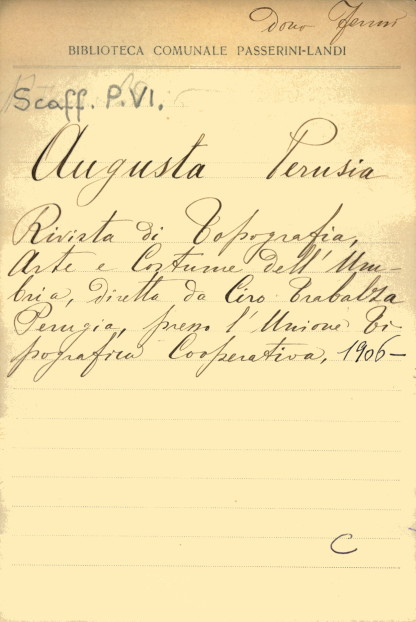 dono Ferrari
BIBLIOTECA COMUNALE PASSERINI-LANDI
Scaff. P.VI.
Augusta Perusia
Rivista di Topografia,
Arte e Costume dell'Um-
bria, diretta da Ciro Trabalza
Perugia, presso l'Unione Ti-
pografica Cooperativa, 1906-
C